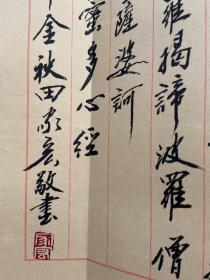 羅揭諦波羅僧
薩婆訶
蜜多心經
金秋田家宏敬書